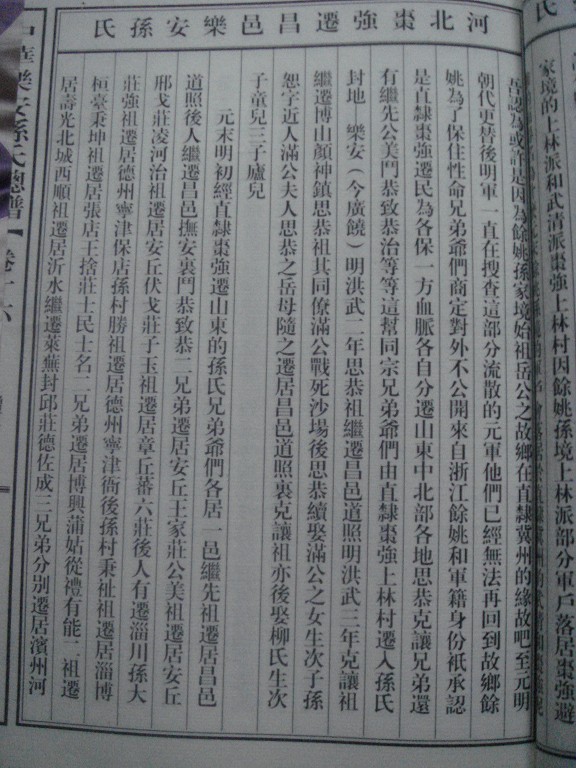 家境的上林派和武清派棗強上林村因餘姚孫境上林部分軍戶落居棗強避
河北棗強遷昌邑樂安孫氏
吾認為或許是因為餘姚孫家境始祖岳公之故鄉在直隸冀州的緣故吧至元明
朝代更替後明軍一直在搜查這部分流散的元軍他們已經無法再回到故鄉餘
姚為了保住性命兄弟爺們商定對外不公開來自浙江餘姚和軍籍身份祇承認
是直隸棗強遷民為各保一方血脈各自分遷山東中北部各地思恭克讓兄弟還
有繼先公美鬥恭致恭治等等這幫同宗兄弟爺們由直隸棗強上林村遷入孫氏
封地樂安（今廣饒）明洪武二年思恭祖繼遷昌邑道照明洪武三年克讓祖
繼遷博山顏神鎮思恭祖其同僚滿公戰死沙場後思恭續娶滿公之女生次子孫
恕字近人滿公夫人思恭之岳母隨之遷居昌邑道照裏克讓祖亦後娶柳氏生次
子童兒三子廬兒
元末明初經直隸棗強遷山東的孫氏兄弟爺們各居一邑繼先祖遷居昌邑
道照後人繼遷昌邑撫安裏鬥恭致恭二兄弟遷居安丘王家莊公美祖遷居安丘
邢戈莊凌河治祖遷居安丘伏戈莊子玉祖遷居章丘蕃六莊後人有遷淄川孫大
莊強祖遷居德州寧津保店孫村勝祖遷居德州寧津衙後孫村秉祉祖遷居淄博
桓臺秉坤祖遷居張店王捨莊士民士名二兄弟遷居博興蒲姑從禮有能二祖遷
居壽光北城西順祖遷居沂水繼遷萊蕪封邱莊德佐成三兄弟分別遷居濱州河
中華樂安孫氏總譜
卷十六